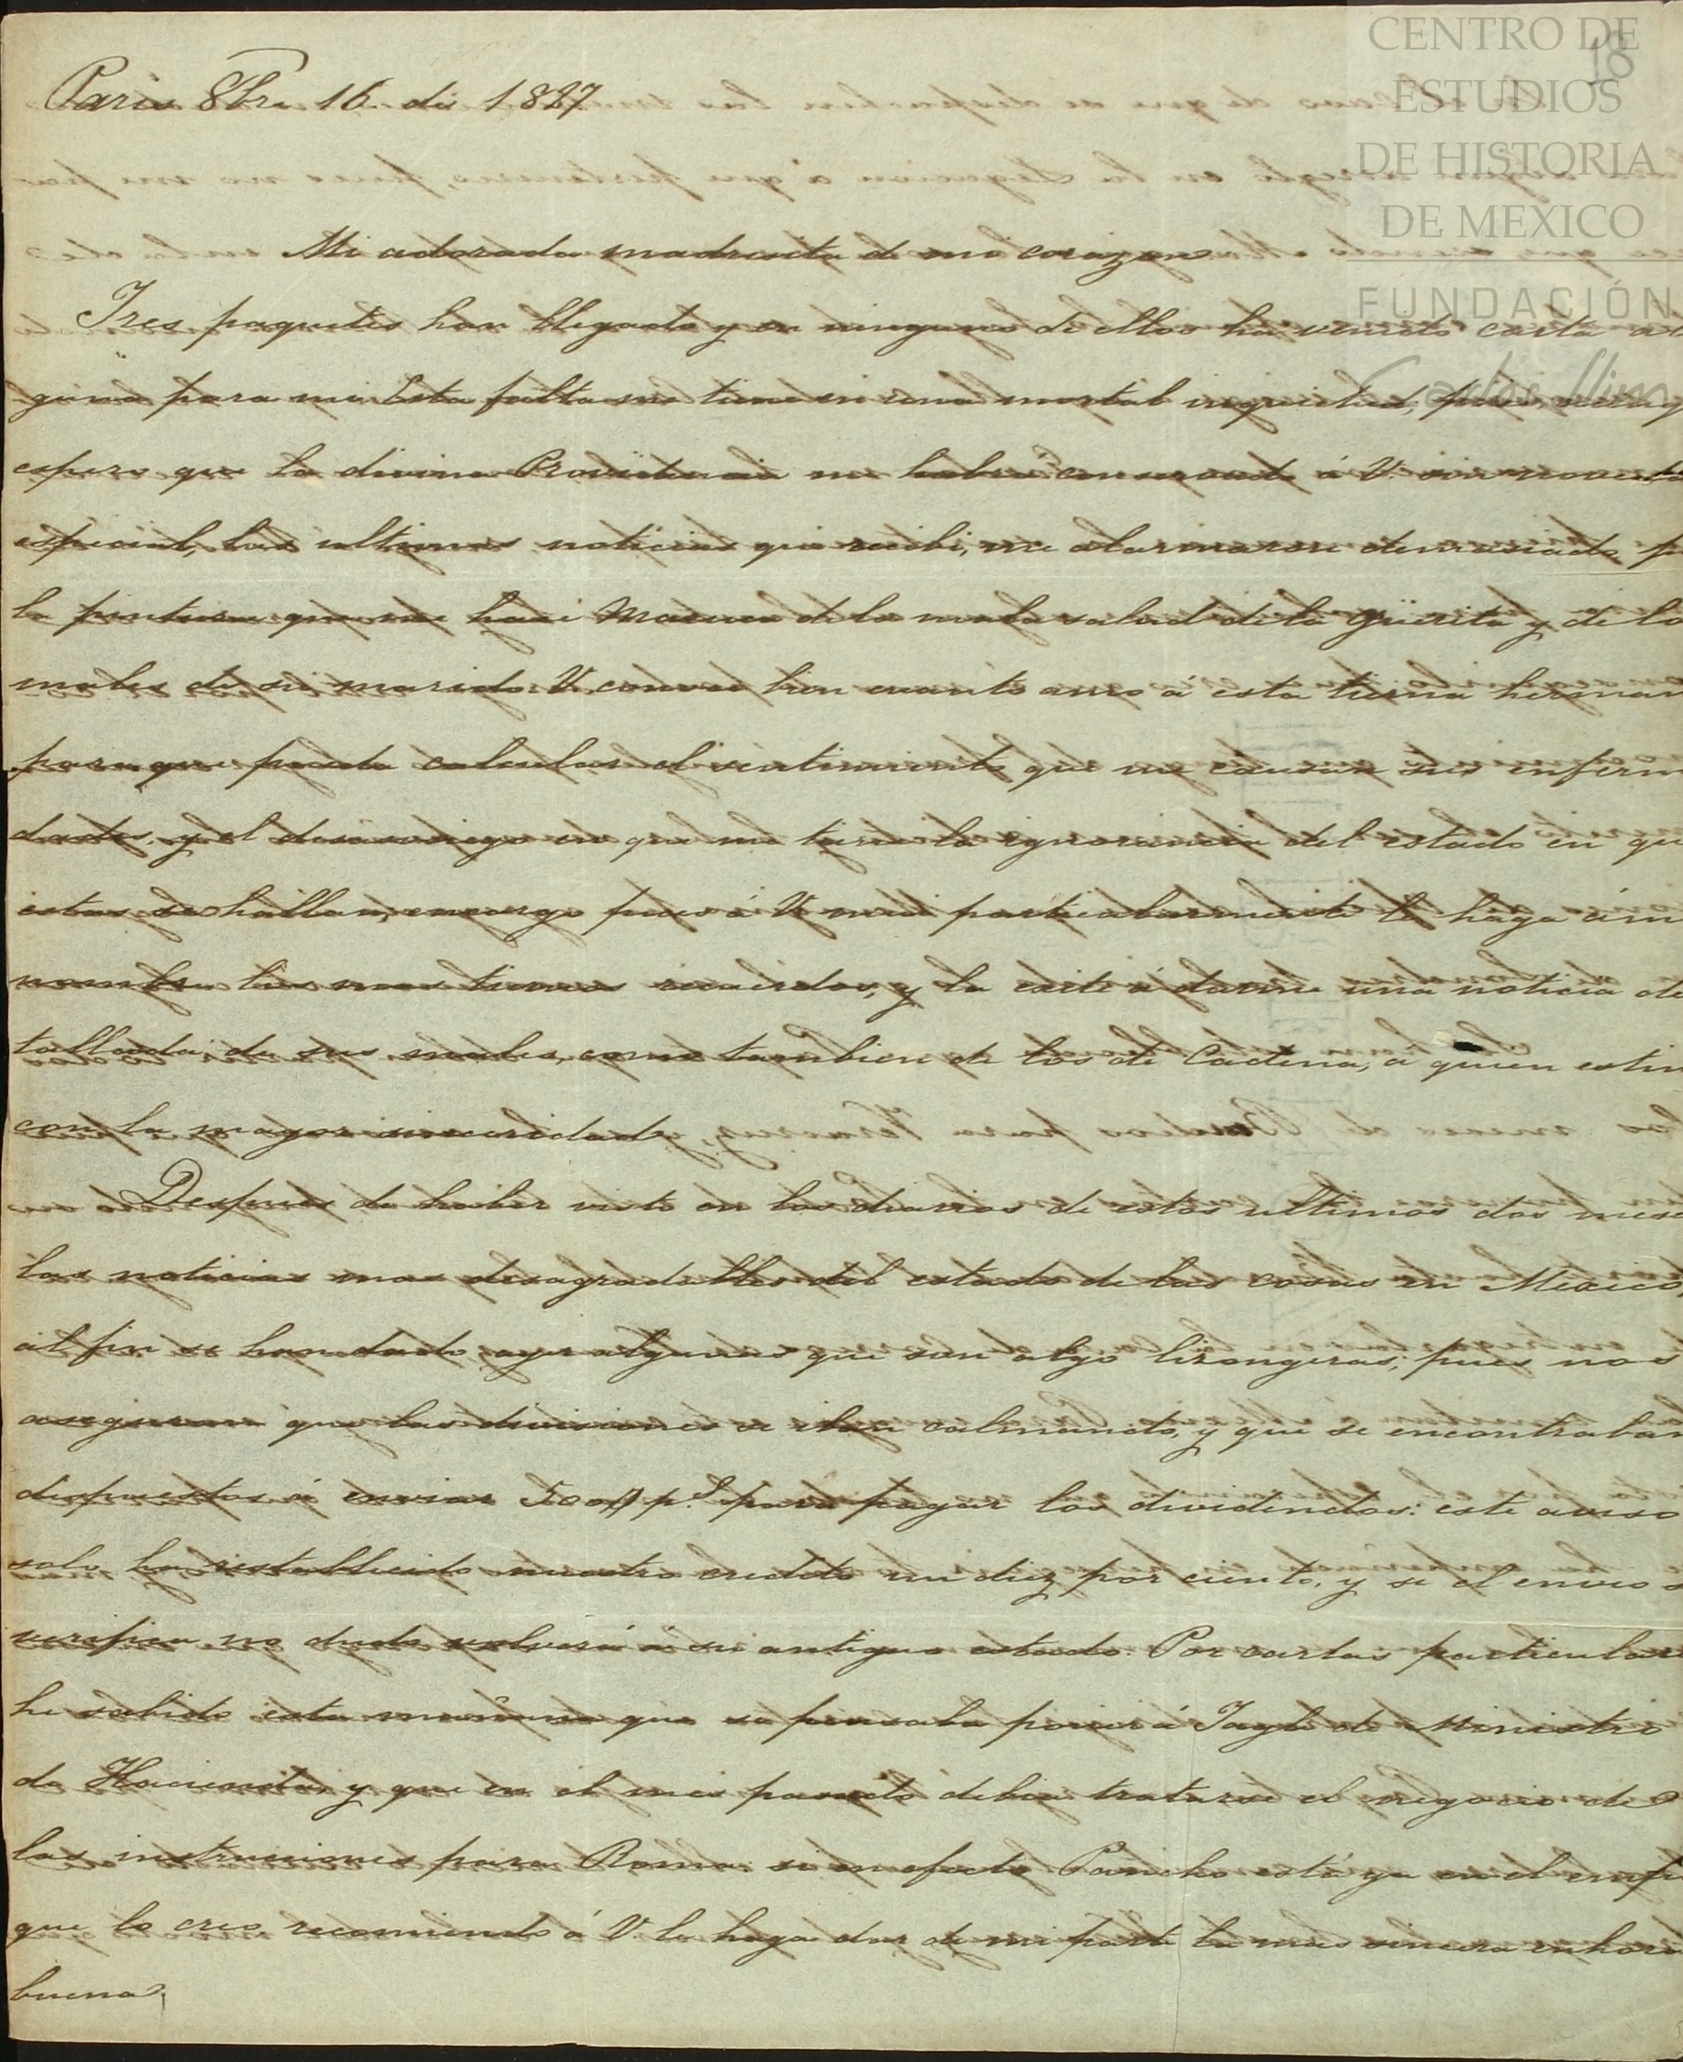 18
CENTRO DE
ESTUDIOS
DE HISTORIA
DE MEXICO
FUNDACIÓN
Carlos Slim
Paris 8bre 16 de 1827
Mi adorada madresita de mi corazon
Tres paquetes han llegado y en ninguno de ellos ha venido carta al
guna para mi. Esta falta me tiene en una mortal inquietud, pues
espero que la divina Providencia me habra conservado á V. sin novedad
especial, las ultimas noticias que recibi, me alarmaron demasiado p
la pintura que me hace de la mala salud de la Güerita y de lo
males de su marido. V. conoce bien cuanto amo á esta tierna herman
para que pueda calcular el sentimiento que me causan sus enferm
dades, y el desasosiego en que me tiene la ignorancia del estado en qu
estas se hallan, encargo pues á V. muy particularmente le haga á mi
nombre las mas tiernas recuerdos, y la exite á darme una noticia de
tallada de sus males, como tambien de los de Cadena, á quien estim
con la mayor sinceridad.
Despues de haber visto en los diarios de estos ultimos dos mese
las noticias mas desagradables del estado de las cosas en Mexico,
al fin se han dado ayer algunas que son algo lisongeras; pues nos
aseguran que las divisiones se iban calmando, y que se encontraban
dispuestos á enviar p.s para pagar los dividendos: este aviso
solo ha restablecido nuestro credito un diez por ciento, y si el envio s
verifica no dudo volverá á su antiguo estado. Por cartas particular
he sabido esta mañana que se pensaba poner á Tagle de Ministro
de Hacienda, y que en el mes pasado debia tratarse el negocio de
las instrucciones para Roma: si en efecto Pancho está ya en el emple
que lo creo, recomiendo á V. le haga dar de mi parte la mas sincera enhora
buena.